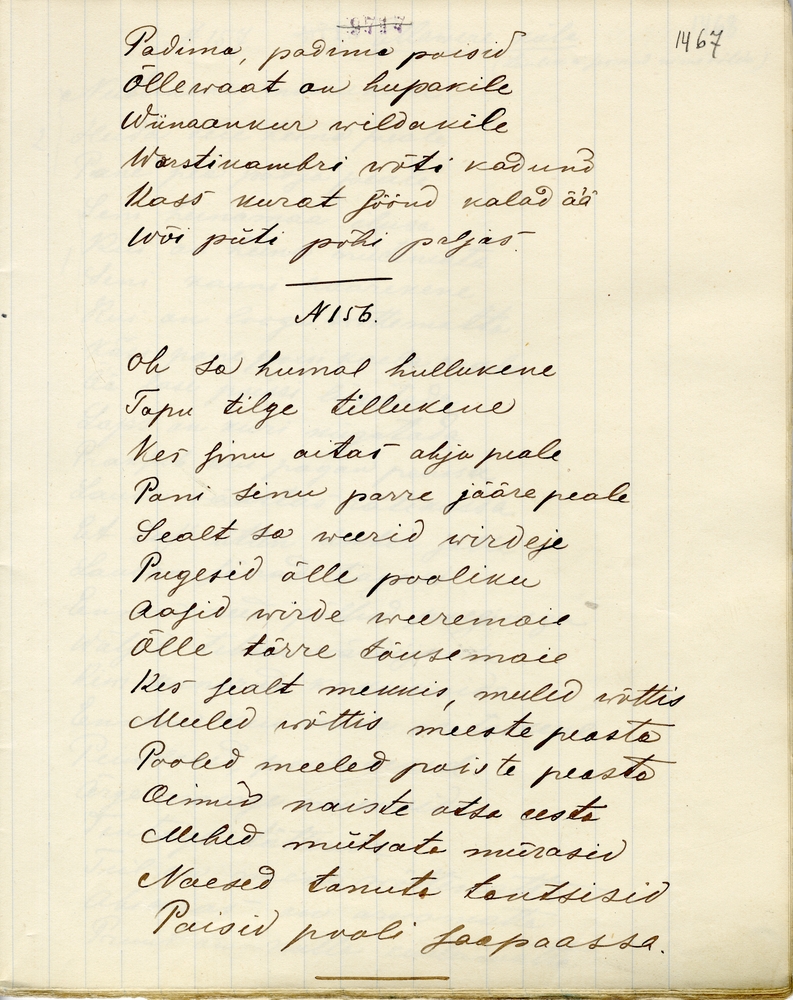 1467
Padima, padime poisid
Õllewaat on hupakile
Wiinaankur wildakile
Warstikambri wõti kadund
Kass kurat söönd kalad ää
Wõi püti põhi paljas.
N156.
Oh sa humal hullukene
Tapu tilge tillukene
Kes sinu aitas ahju peale
Pani sinu parre jääre peale
Sealt sa weerid wirdeje
Pugesid õlle pooliku
Aasid wirde weeremaie
Õlle tõrre tõusemaie
Kes sealt mekkis, meeled wõttis
Meeled wõttis meeste peasta
Pooled meeled poiste peasta
Oimud naiste otsa eesta
Mehed mütsata mürasid
Naesed tanuta tantsisid
Poisid pooli saapaassa.